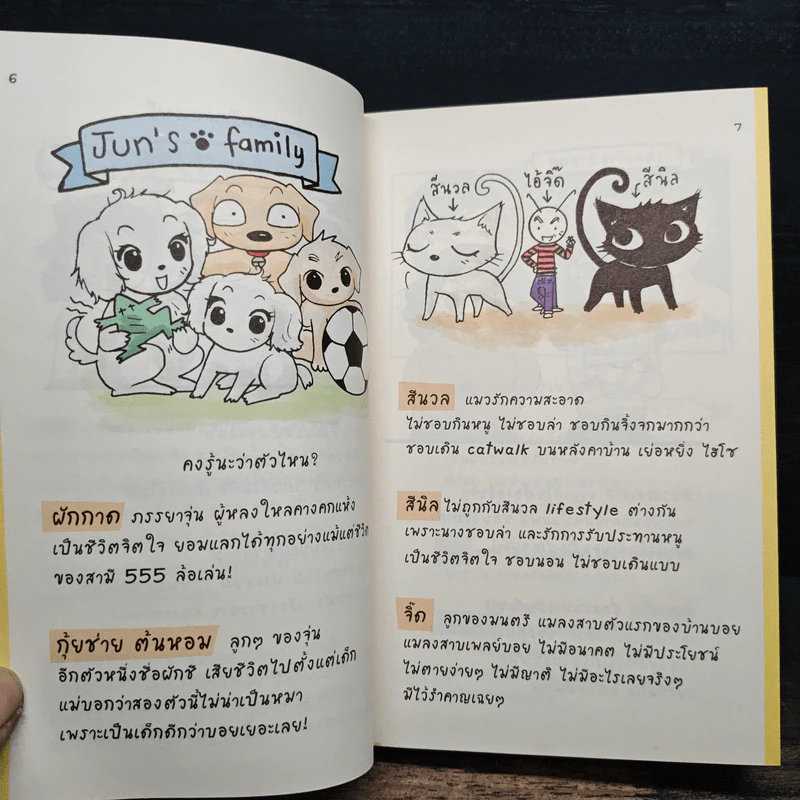 6
Jun's family
คงรู้นะว่าตัวไหน?
ผักกาด ภรรยาจุ่น ผู้หลงใหลคางคกแห้ง
เป็นชีวิตจิตใจ ยอมแลกได้ทุกอย่างแม้แต่ชีวิต
ของสามี 555 ล้อเล่น!
กุ้ยช่าย ต้นหอม ลูกๆ ของจุ่น
อีกตัวหนึ่งชื่อผักชี เสียชีวิตไปตั้งแต่เด็ก
แม่บอกว่าสองตัวนี้ไม่น่าเป็นหมา
เพราะเป็นเด็กดีกว่าบอยเยอะเลย!
7
สีนวล
ไอ้จี๊ด
สีนิล
สีนวล แมวรักความสะอาด
ไม่ชอบกินหนู ไม่ชอบล่า ชอบกินจิ้งจกมากกว่า
ชอบเดิน catwalk บนหลังคาบ้าน เย่อหยิ่ง ไฮโซ
สีนิล ไม่ถูกกับสีนวล lifestyle ต่างกัน
เพราะนางชอบล่า และรักการรับประทานหนู
เป็นชีวิตจิตใจ ชอบนอน ไม่ชอบเดินแบบ
จี๊ด ลูกของมนตรี แมลงสาบตัวแรกของบ้านบอย
แมลงสาบเพลย์บอย ไม่มีอนาคต ไม่มีประโยชน์
ไม่ตายง่ายๆ ไม่มีญาติ ไม่มีอะไรเลยจริงๆ
มีไว้รำคาญเฉยๆ